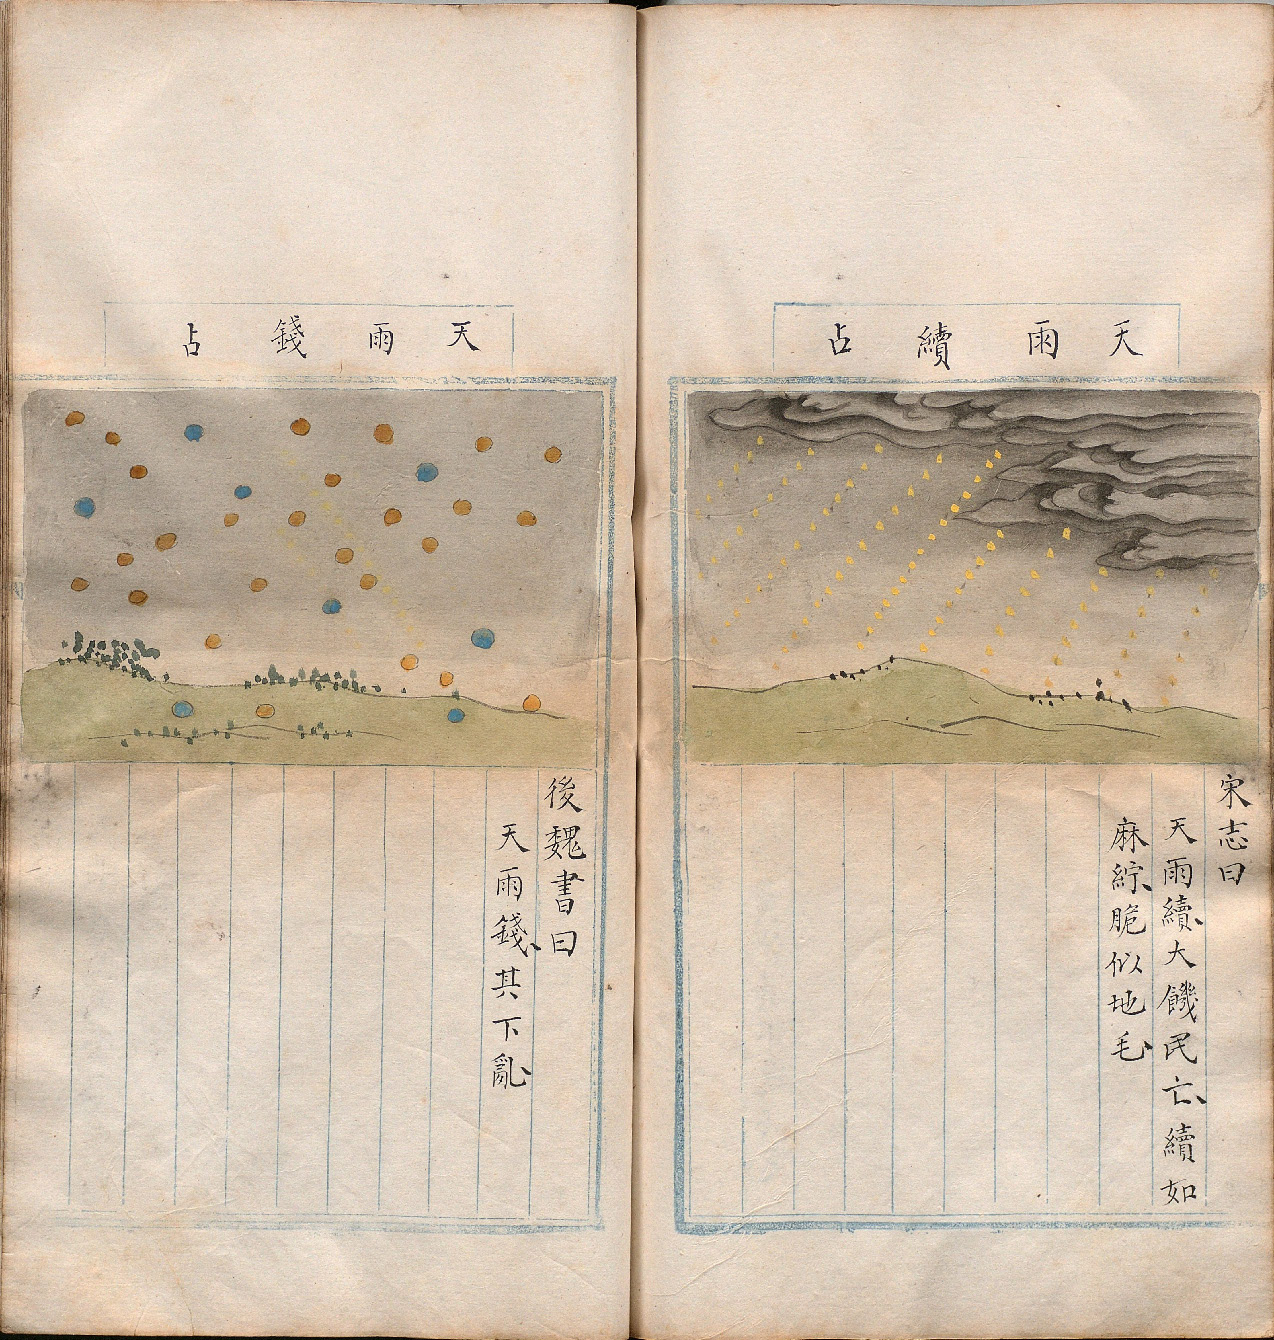 天雨續占
宋志曰
天雨續、大饑民亡、續如
麻綜、脆似地毛、
天雨錢占
後魏書曰
天雨錢、其下亂、